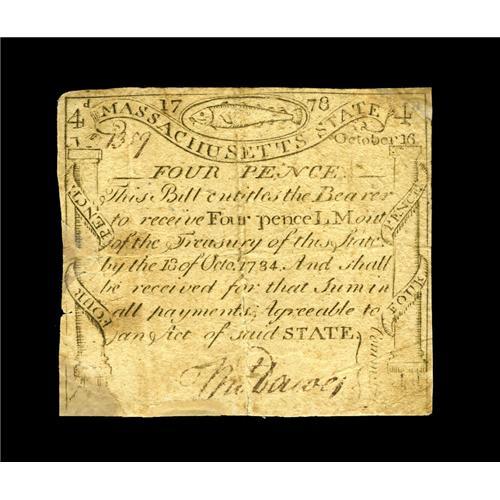 4d 17 78 4d
MASSACHUSETTS STATE
No 1389 October 16
FOUR PENCE
This Bill entitles the Bearer
to receive Four pence L M out
of the Treasury of this State
by the 18 of Octo. 1784. And shall
be received for that Sum in
all payments, Agreeable to
an Act of said STATE.
FOUR PENCE
FOUR PENCE